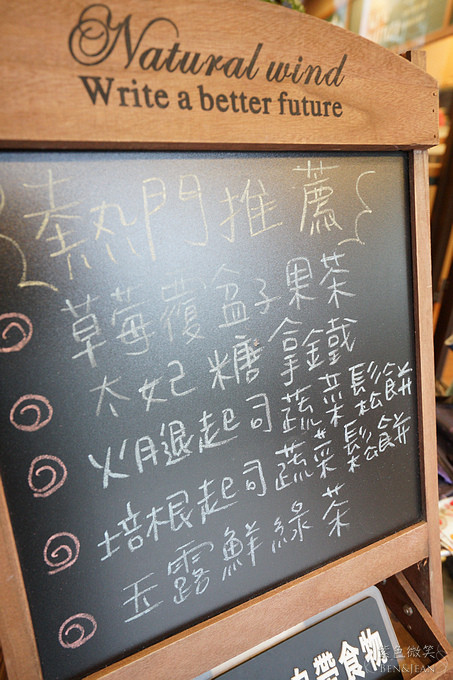 Natural wind
Write a better future
熱門推薦
草莓覆盆子果茶
太妃糖拿鐵
火腿起司蔬菜鬆餅
培根起司蔬菜鬆餅
玉露鮮綠茶
帶食物
紫色微笑
BEN&JEAN